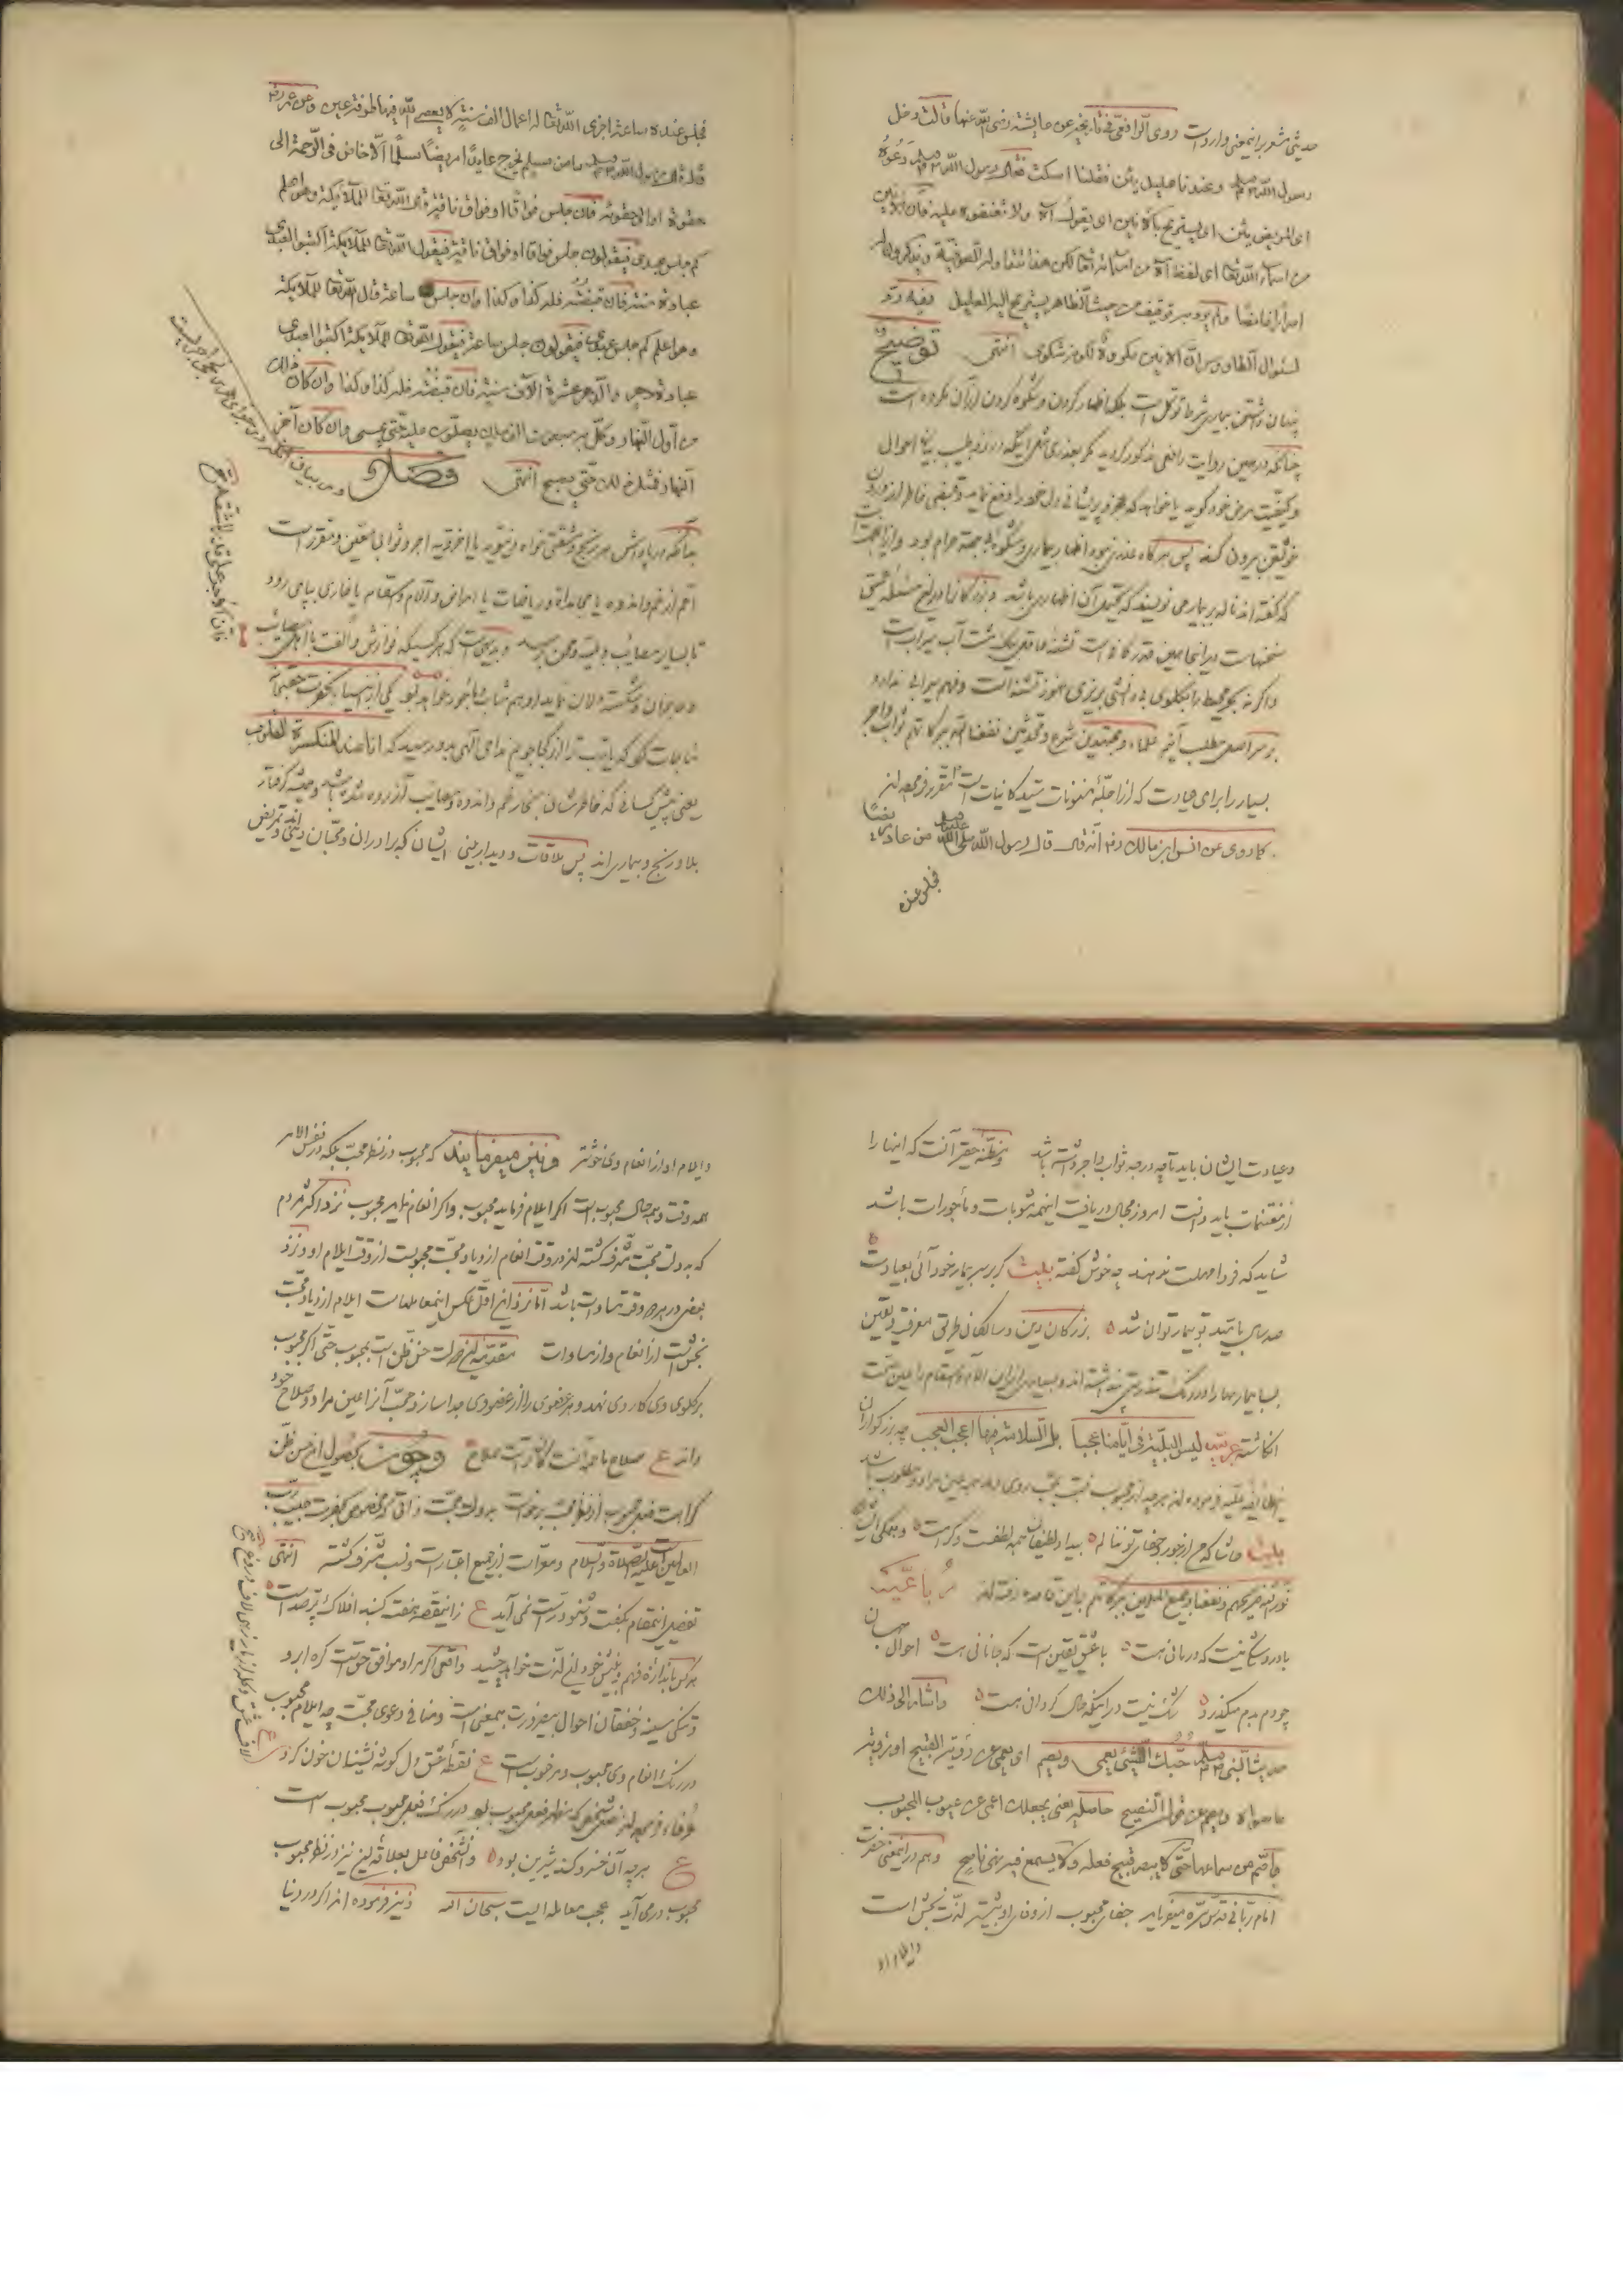 حدیثی مشعر براینمعنی واردست روی الرافعی فی تاریخه عن عایشة رضی الله عنها قالت دخل
رسول الله صلعم وعندنا علیل یئن فقلنا اسکت فقال رسول الله صلعم دعوه
ای المریض یئن ای یستریح بالانین ای یقول آه ولا تعنفوه علیه فان الانین
من اسماء الله تعا ای لفظ آه من اسمائه تعا لکن هذا تتداوله الصوفیة ویذکرون له
اسرارا غامضا ولم یرد به توقیف من حیث الظاهر یستریح الیه العلیل وفیه رد
لسئوال الطاوس ان الانین مکروه لکونه شکوی انتهی توضیح
پنهان داشتن بیماری شرط توکل است بلکه اظهار کردن و شکوه کردن از آن مکروه است
چنانکه در همین روایت رافعی مذکور گردید مگر بعذری مثل اینکه در نزد طبیب بیان احوال
وکیفیت مرض خود گوید یا خواهد که عجز و پریشانی دل خود را دفع نماید
خویشتن بیرون کند پس هرگاه عذر نبود اظهار بیماری و شکوه بی جهته حرام بود وازینجاست
که گفته اند ناله بر بیمار می نویسند که متضمن آن اظهار می باشد و بزرگانرا درین مسئله عمیق
سخنهاست در اینجا همین قدر کافیست تشنهٔ عاقل بیک مشت آب سیراب است
واگر نه بحر محیط را بگلوی بی دانشی بریزی هنوز تشنه است وفهم سیرابی ندارد
بر سر اصل مطلب آئیم علماء ومجتهدین شرع ومحدثین نفعنا الله ببرکاتهم ثواب واجر
بسیار را برای عیادت که از اجلهٔ مسنونات سید کائنات است مقرر فرموده اند
کما روی عن انس ابن مالک رض انه قال قال رسول الله صلی الله علیه وسلم من عاد مریضا
فجلس عنده
فجلس عنده ساعة اجری الله تعا له اعمال الف سنة لا یعصی الله فیها طرفة عین وعن عمر رض
قال قال رسول الله صلعم ما من مسلم یخرج عایدا مریضا مسلما الا خاض فی الرحمة الی
حقوه او الی حقویه فان جلس فواقا او فواق ناقة قال الله تعا للملائکة وهو اعلم
کم جلس عبدی فیقولون جلس فواقا او فواق ناقة فیقول الله تعا للملایکة اکتبوا لعبدی
عبادة سنة فان قبضته فله کذا وکذا وان جلس ساعة قال الله تعا للملایکة
وهو اعلم کم جلس عبدی فیقولون جلس ساعة فیقول الله تعا للملایکة اکتبوا لعبدی
عبادة دهر والدهر عشرة الآف سنة فان قبضته فله کذا وکذا وان کان ذلک
من اول النهار وکل به سبعون الف ملک یصلون علیه حتی یمسی وان کان آخر
النهار فمثل ذلک حتی یصبح انتهی فصل در بیان
بدانکه در پاداش هر رنج ومشقتی خواه دنیویه یا اخرویه اجر وثواب معین ومقررست
اعم از غم واندوه یا مجاهدات وریاضات یا امراض وآلام واسقام یا خاری بپای رود
تا بسیار مصائب وبلیه ومحن برسد وبدیهی است که هر کسیکه نوازش والفت با اهل مصائب
وعاجزان وشکسته دلان نماید او هم مثاب وماجور خواهد بود یکی از انبیاء بحضرت حق
مناجات کرد که یا رب ترا از کجا جویم ندای الهی بدو رسید که انا عند المنکسرة القلوب
یعنی پیش کسانی که خاطرشان بخار غم واندوه ومصائب آزرده شده باشد وهمیشه گرفتار
بلا ورنج وبیماری اند پس ملاقات ودیدار بینی ایشان که برادران ومحبان دینی اند وتمریض
فان الاجر علی قدر المشقة
وعیادت ایشان باید تا چه درجه ثواب واجر داشته باشد ومظنهٔ حقیر آنست که اینها را
از مغتنمات باید دانست امروز مجال دریافت اینهمه مثوبات وماجورات باشد
شاید که فردا مهلت ندهند چه خوش گفته بیت گر بر سر بیمار خود آئی بعیادت
صد سال بامید تو بیمار توان شد بزرگان دین وسالکان طریق معرفت ویقین
بسا بیماریها را در رنگ تندرستی پنداشته اند وبسیاری ازین آلام واسقام را عین صحت
انگاشته عربیه لیس البلیة فی ایامنا عجبا بل السلامة فیها اعجب العجب چه بزرگواران
این طائفهٔ علیه فرموده اند هر چه از محبوب نسبت بمحب روی دهد همه عین مراد ومطلوب باشد
بیت حاشا که من از جور وجفای تو بنالم بیداد لطیفان همه لطفست وکرامت وهمگی ایشان
نور الله ضریحهم ونفعنا وجمیع المسلمین ببرکاتهم باین قاعده رفته اند رباعیه
با درد شکی نیست که درمانی هست با عشق یقین است که جانانی هست احوال جهان
چو دم بدم میگذرد شک نیست در اینکه حال گردانی هست واشار الی ذلک
حدیث النبی صلعم حبک الشئ یعمی ویصم ای یعمی عن رؤیة القبیح او رؤیة
ما سواه ویصم عن قول النصیح حاصله یعنی یجعلک اعمی عن عیوب المحبوب
واصم عن سماعها حتی لا یبصر قبیح فعله ولا یسمع فیه نهی ناصح وهم درینمعنی حضرت
امام ربانی قدس سره میفرماید جفای محبوب از وفای او بیشتر لذت بخش است
وایلام او
وایلام او از انعام وی خوشتر ونیز میفرمایند که محبوب در نظر محب بلکه در نفس الامر
همه وقت وبهر حال محبوبست اگر ایلام فرماید محبوب واگر انعام نماید محبوب نزد اکثر مردم
که بدولت محبت مشرف گشته اند در وقت انعام ازدیاد محبت محبوبست از وقت ایلام او ونزد
بعضی در هر دو وقت مساوات باشد اما نزد اقل عکس اینمعامله است ایلام ازدیاد محبت
بخش است از انعام واز مساوات مقدمهٔ این دولت حسن ظن است بمحبوب حتی اگر محبوب
بر گلوی وی کارد نهد وهر عضوی را از عضو وی جدا سازد محب آنرا عین مراد وصلاح خود
داند ع صلاح ما همه آنست کان تراست صلاح وچون بحصول این حسن ظن
کراهت فعل محبوب از نظر محب برخاست بدولت محبت ذاتی که مخصوص بحضرت حبیب رب
العالمین است علیه الصلاة والسلام ومعرا از جمیع اعتبارات ونسب مشرف گشته انتهی
تفصیل اینمقام بگفت وشنود راست نمی آید ع زانیقصه هفت گنبد افلاک پر صداست
هر کس باندازهٔ فهم وبینش خود ازین لذت خواهد چشید واقعی اگر مراد موافق حق تست گره ابرو
وتنگی سینه وخفقان احوال بیضرورت بیمعنی است ومنافی دعوی محبت چه ایلام محبوب
در رنگ انعام وی محبوب ومرغوبست ع نقطهٔ عشق دل گوشه نشینان خون کرد
عرفاء فرموده اند شخصی که مظهر فعل محبوب بود در رنگ فعل محبوب محبوب است
ع هر چه آن خسرو کند شیرین بود وآنشخص فاعل بعلاقهٔ این نیز در نظر محبوب
محبوب در می آید عجب معامله ایست سبحان الله ونیز فرموده اند اگر در دنیا
لاف عشق وگله از یار زهی لاف دروغ